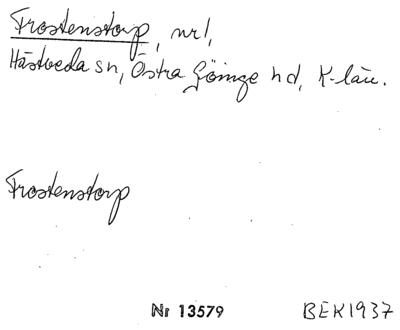 Frostenstorp, nr 1,
Hästveda sn, Östra Göinge hd, K-län.
Frostenstorp
Nr 13579 BEK1937